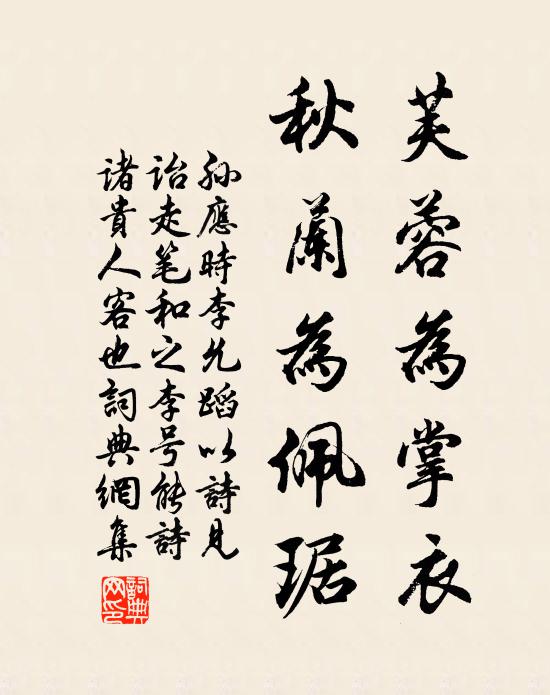 芙蓉為掌衣
秋蘭為佩琚
孙應時李允蹈以詩見
詒走笔和之李号能詩
諸貴人客也詞典網集
詞典网印